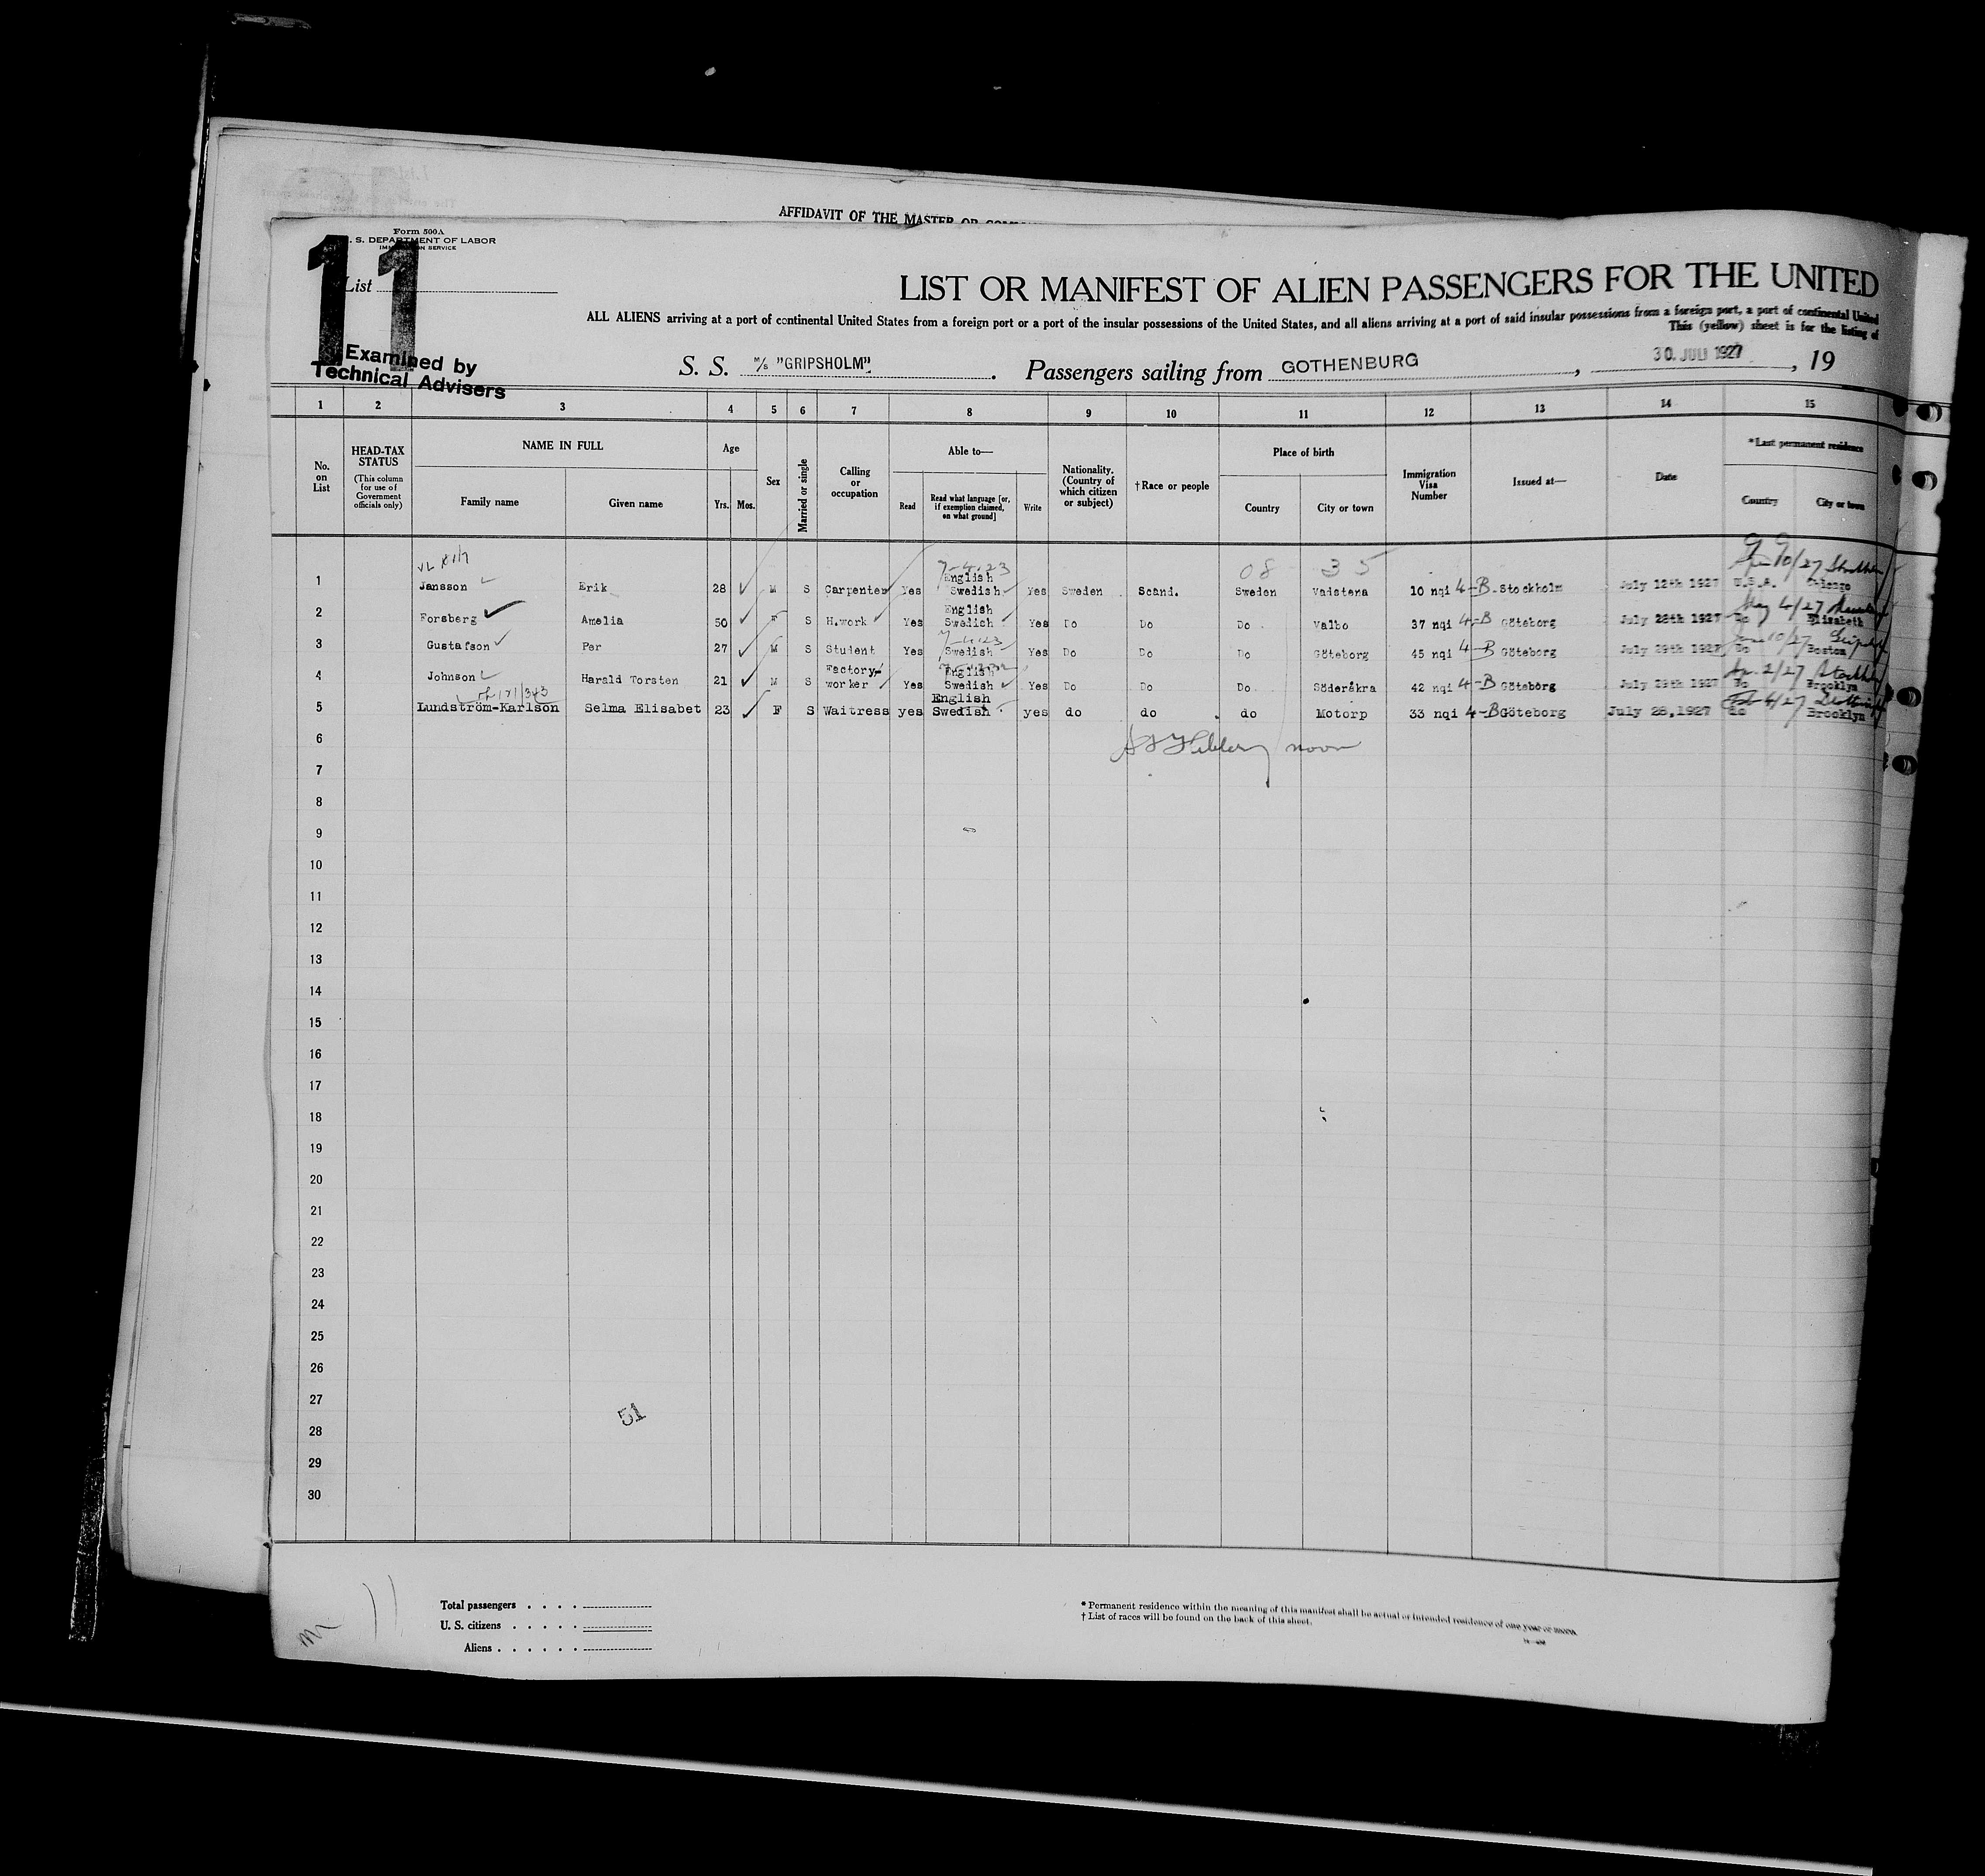 AFFIDAVIT OF THE MASTER OR
Form 500A
S. DEPARTMENT OF LABOR
IMMIGRATION SERVICE
11
List
LIST OR MANIFEST OF ALIEN PASSENGERS FOR THE UNITED
ALL ALIENS arriving at a port of continental United States from a foreign port or a port of the insular possessions of the United States, and all aliens arriving at a port of said insular possessions from a foreign port, a port of continental United
This (yellow) sheet is for the listing of
Examined by
Technical Advisers
S. S. M/s "GRIPSHOLM". Passengers sailing from GOTHENBURG, 30. JULI 1927, 19
1 2 3 4 5 6 7 8 9 10 11 12 13 14 15
No. on List
HEAD-TAX STATUS
(This column for use of Government officials only)
NAME IN FULL
Family name Given name
Age
Yrs. Mos.
Sex
Married or single
Calling or occupation
Able to—
Read
Read what language [or, if exemption claimed, on what ground]
Write
Nationality. (Country of which citizen or subject)
†Race or people
Place of birth
Country City or town
Immigration Visa Number
Issued at—
Date
*Last permanent residence
Country City or town
7-4-23 08 35
1 Jansson Erik 28 M S Carpenter Yes English Swedish Yes Sweden Scand. Sweden Vadstena 10 nqi 4-B Stockholm July 12th 1927 U.S.A. Chicago
May 4/27
2 Forsberg Amelia 50 F S H.work Yes English Swedish Yes Do Do Do Valbo 37 nqi 4-B Göteborg July 28th 1927 Do Elizabeth
7-4-23 June 10/27
3 Gustafson Per 27 M S Student Yes Swedish Yes Do Do Do Göteborg 45 nqi 4-B Göteborg July 29th 1927 Do Boston
2/27
4 Johnson Harald Torsten 21 M S Factory worker Yes English Swedish Yes Do Do Do Söderåkra 42 nqi 4-B Göteborg July 29th 1927 Do Brooklyn
4/27
5 Lundström-Karlson Selma Elisabet 23 F S Waitress yes English Swedish yes do do do Motorp 33 nqi 4-B Göteborg July 28,1927 do Brooklyn
6 noon
7
8
9
10
11
12
13
14
15
16
17
18
19
20
21
22
23
24
25
26
27
51
28
29
30
11
Total passengers
U. S. citizens
Aliens
* Permanent residence within the meaning of this manifest shall be actual or intended residence of one year or more.
† List of races will be found on the back of this sheet.